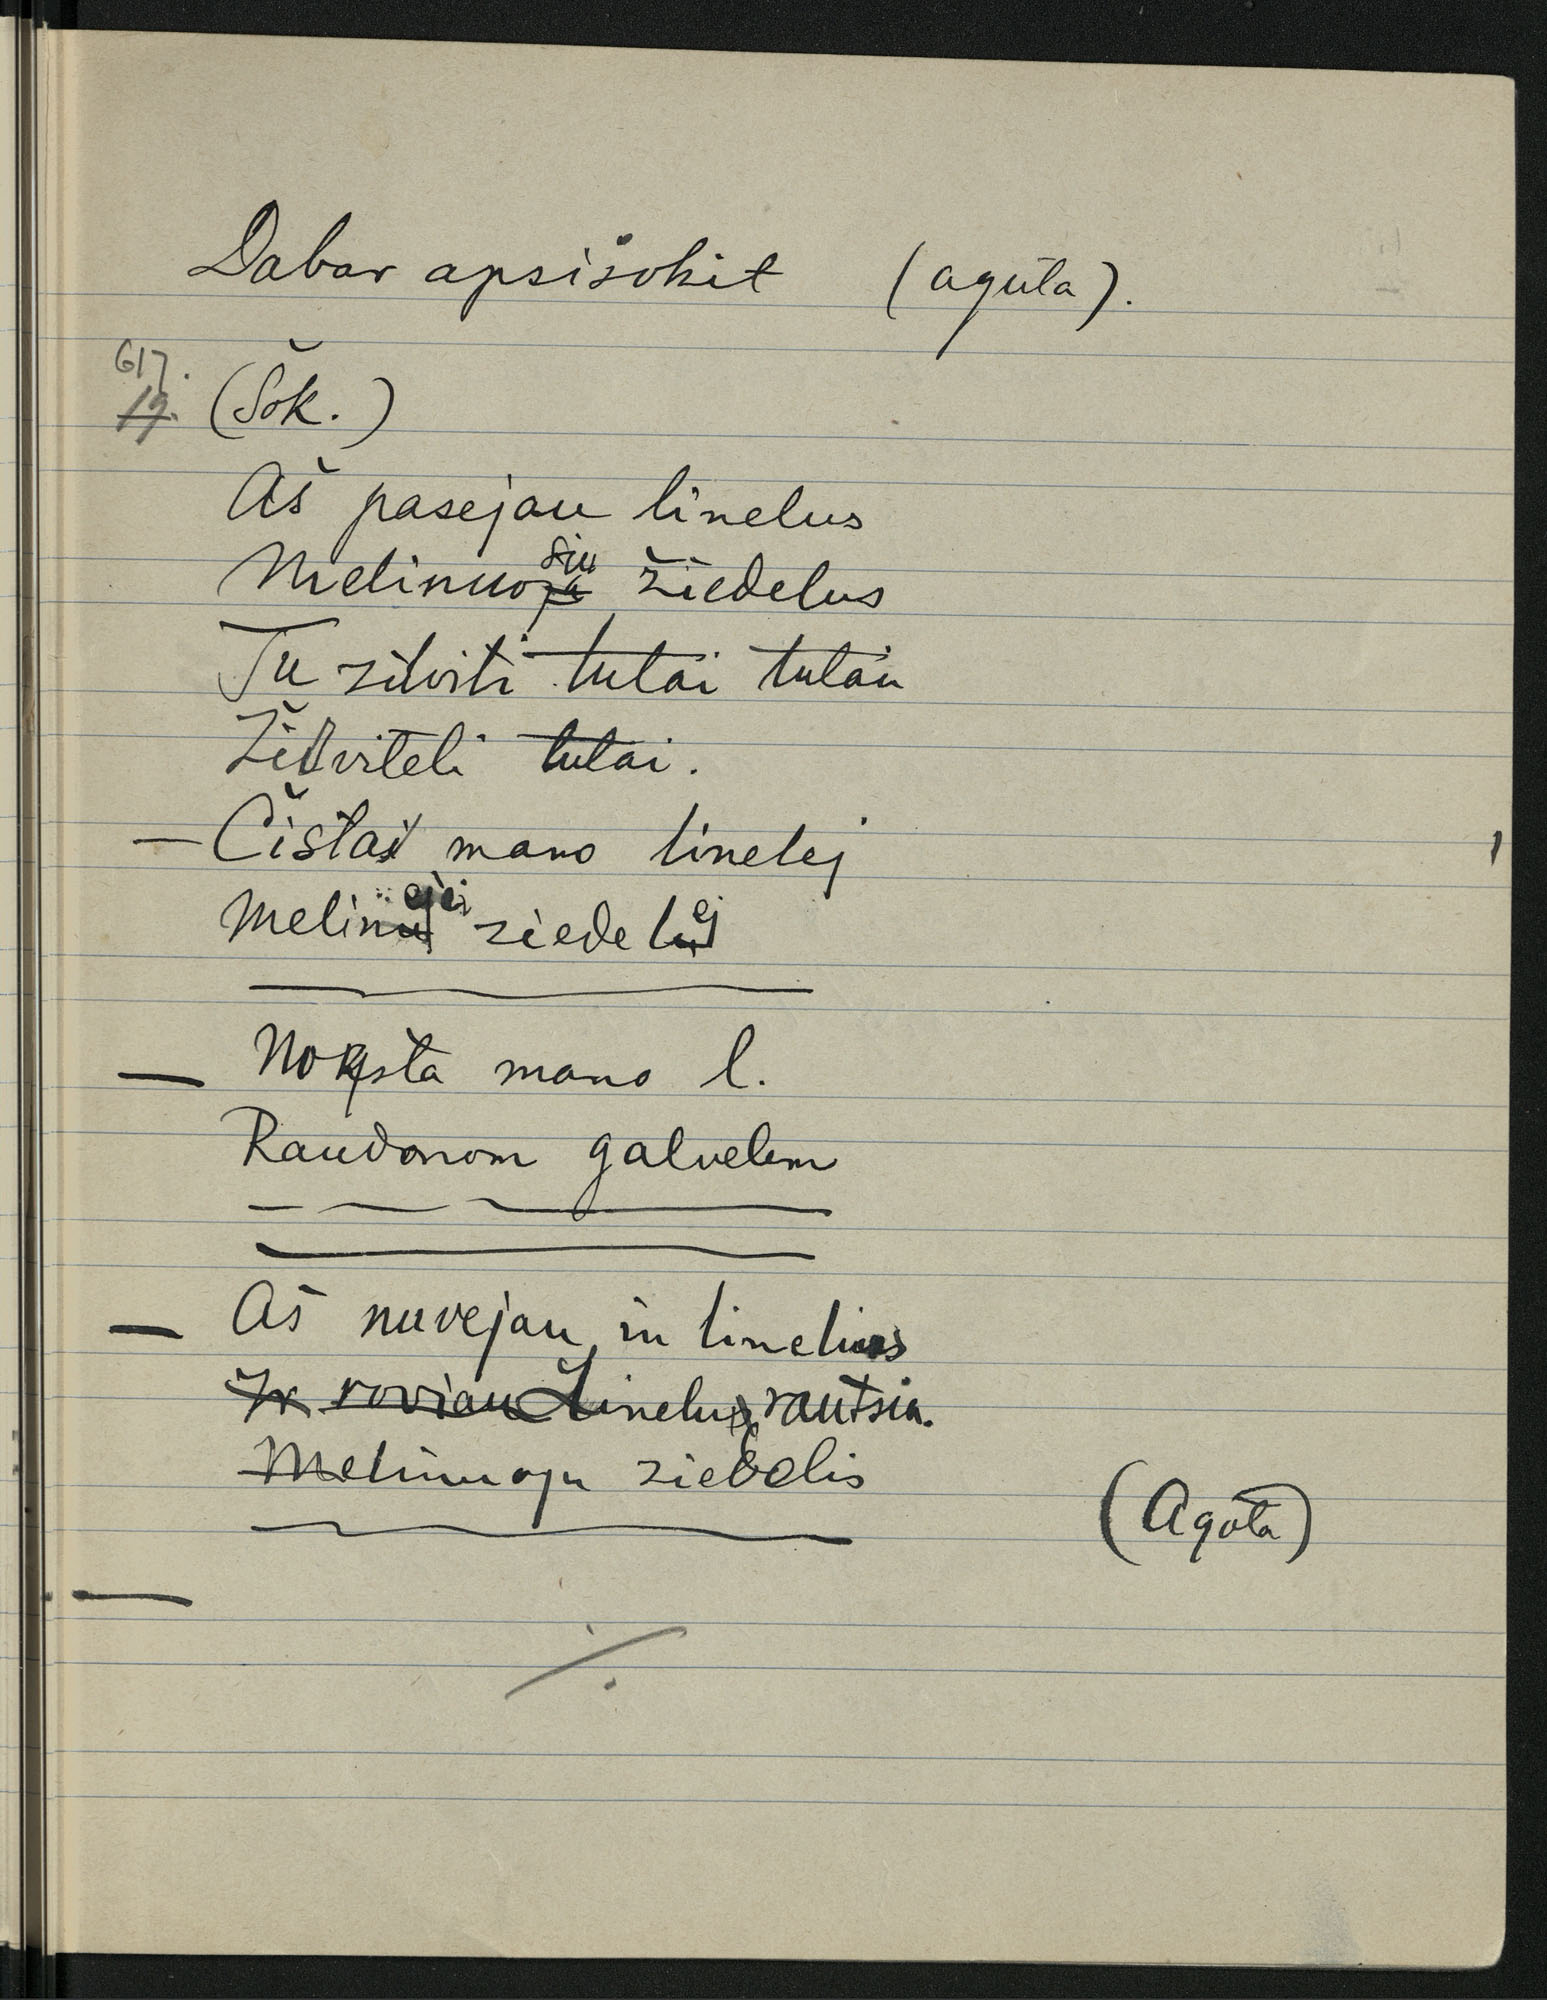 Dabar apsišokit (agūta).
617.
19. (Šok.)
Aš pasejau linelus
Melinuosiu žiedelus
Tu žilviti tutai tutau
Žilviteli tutai.
— Čistai mano linelej
Melinejei ziedelej
— Noksta mano l.
Raudonom galvelem
— Aš nuvejau in linelius
Ir roviau Linelus rautsia.
Melinuoju ziedelis
(Agota)